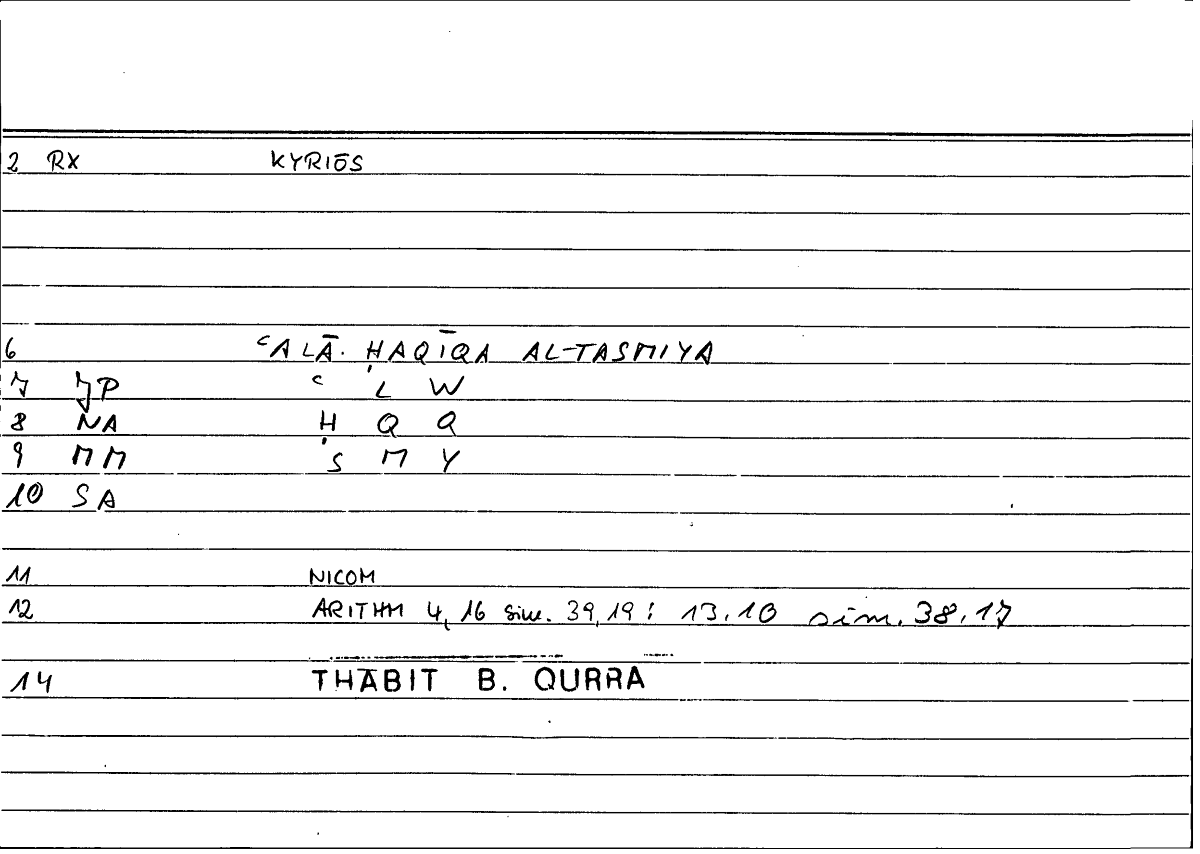 2 RX KYRIŌS
6 ʿALĀ ḤAQĪQA AL-TASMIYA
7 JP ʿ L W
8 NA Ḥ Q Q
9 MM S M Y
10 SA
11 NICOM
12 ARITHM 4,16 sim. 39,19; 13.10 sim. 38.17
14 THĀBIT B. QURRA